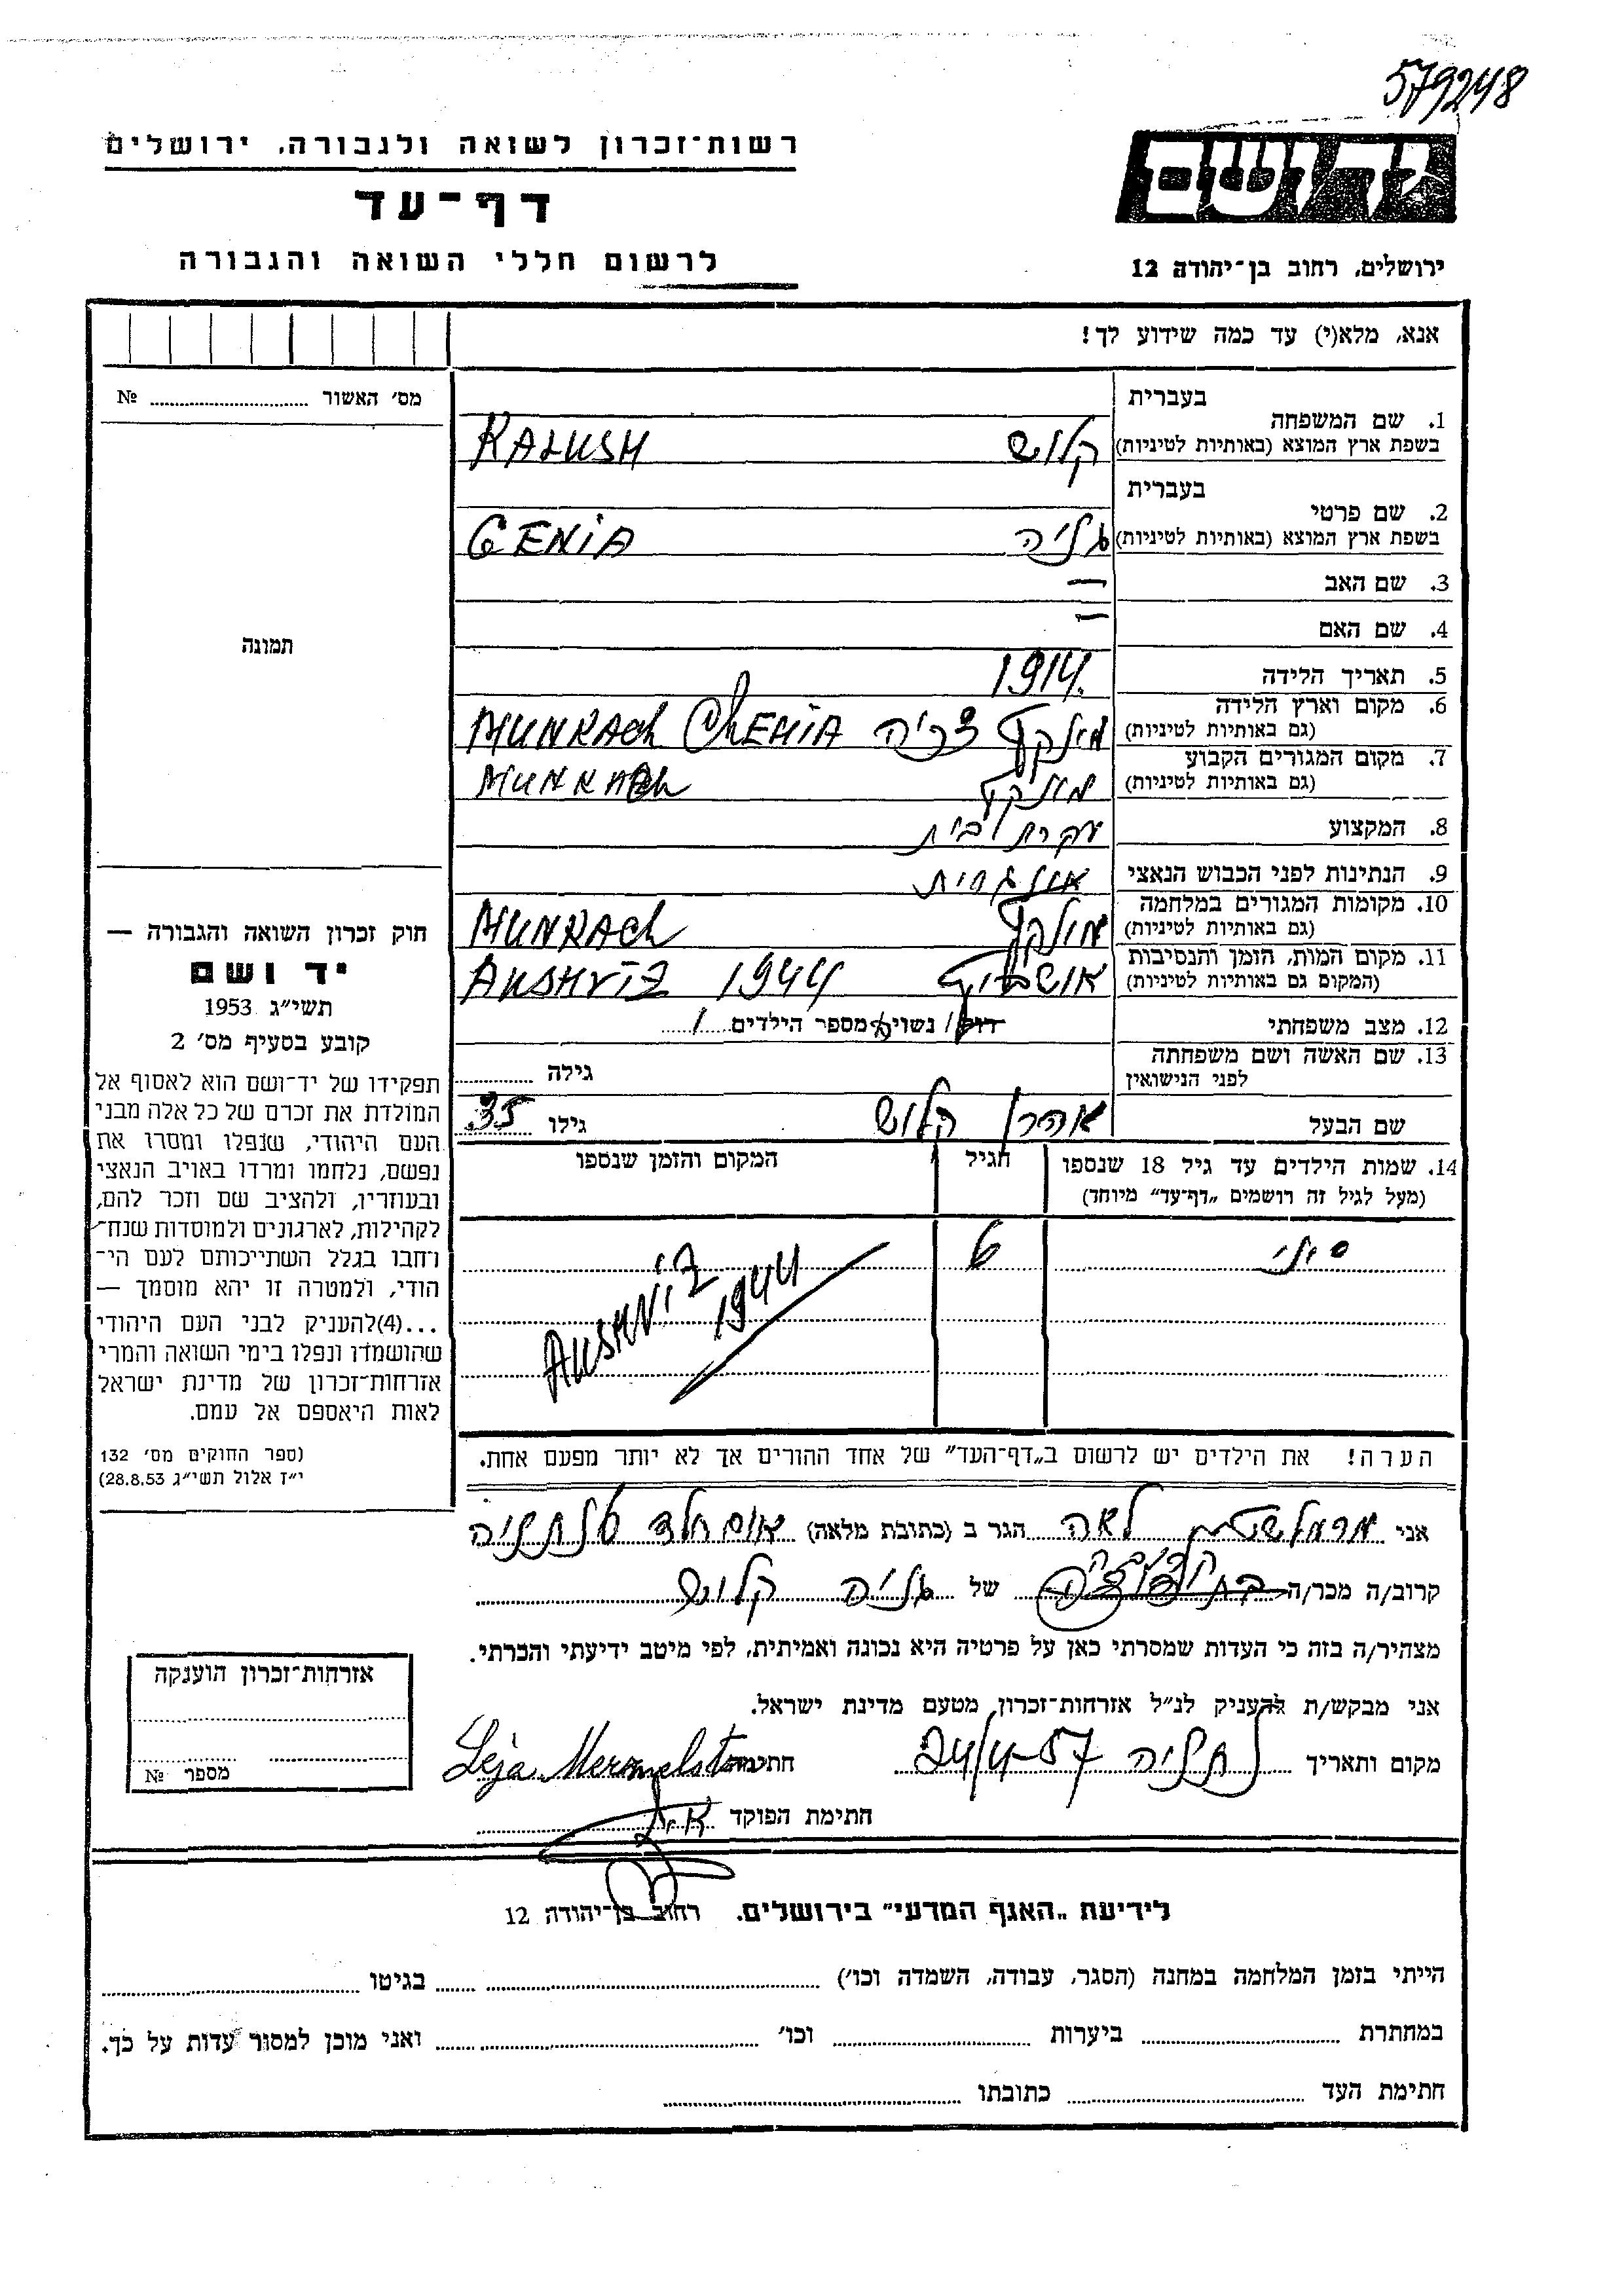 579248
רשות־זכרון לשואה ולגבורה, ירושלים
דף־עד
לרשום חללי השואה והגבורה
יד ושם
ירושלים, רחוב בן־יהודה 12
אנא, מלא(י) עד כמה שידוע לך!
מס׳ האשור № 
בעברית
1. שם המשפחה
בשפת ארץ המוצא (באותיות לטיניות)
קלוש KALUSH
בעברית
2. שם פרטי
בשפת ארץ המוצא (באותיות לטיניות)
גניה GENIA
3. שם האב —
4. שם האם —
תמונה
5. תאריך הלידה 1914.
6. מקום וארץ הלידה
(גם באותיות לטיניות)
מונקץ צכיה MUNKACH CHEHIA
7. מקום המגורים הקבוע
(גם באותיות לטיניות)
מונקץ MUNKACH
8. המקצוע עקרת בית
9. הנתינות לפני הכבוש הנאצי אונגרית
10. מקומות המגורים במלחמה
(גם באותיות לטיניות)
מונקץ MUNKACH
11. מקום המות, הזמן והנסיבות
(המקום גם באותיות לטיניות)
אושביץ AUSHVIZ 1944
12. מצב משפחתי רוק/ נשוי/אה מספר הילדים 1
13. שם האשה ושם משפחתה
לפני הנישואין
גילה
שם הבעל אהרן קלוש גילו 35
14. שמות הילדים עד גיל 18 שנספו
(מעל לגיל זה רושמים „דף־עד״ מיוחד)
הגיל
המקום והזמן שנספו
6
AUSHVIZ
1944
הערה! את הילדים יש לרשום ב„דף־העד״ של אחד ההורים אך לא יותר מפעם אחת.
חוק זכרון השואה והגבורה —
יד ושם
תשי״ג 1953
קובע בסעיף מס׳ 2
תפקידו של יד־ושם הוא לאסוף אל
המולדת את זכרם של כל אלה מבני
העם היהודי, שנפלו ומסרו את
נפשם, נלחמו ומרדו באויב הנאצי
ובעוזריו, ולהציב שם וזכר להם,
לקהילות, לארגונים ולמוסדות שנח־
רחבו בגלל השתייכותם לעם הי־
הודי, ולמטרה זו יהא מוסמך —
...(4)להעניק לבני העם היהודי
שהושמדו ונפלו בימי השואה והמרי
אזרחות־זכרון של מדינת ישראל
לאות היאספם אל עמם.
(ספר החוקים מס׳ 132
י״ז אלול תשי״ג 28.8.53)
אני מרמלשטיין לאה הגר ב (כתובת מלאה) נתניה
קרוב/ה מכר/ה קרובה של גניה קלוש
מצהיר/ה בזה כי העדות שמסרתי כאן על פרטיה היא נכונה ואמיתית, לפי מיטב ידיעתי והכרתי.
אני מבקש/ת להעניק לנ״ל אזרחות־זכרון, מטעם מדינת ישראל.
מקום ותאריך נתניה 24/4-57 חתימה Leja Mermelstein
חתימת הפוקד
אזרחות־זכרון הוענקה
מספר №
לידיעת „האגף המדעי״ בירושלים. רחוב בן־יהודה 12
הייתי בזמן המלחמה במחנה (הסגר, עבודה, השמדה וכו׳) בגיטו
במחתרת ביערות וכו׳ ואני מוכן למסור עדות על כך.
חתימת העד כתובתו